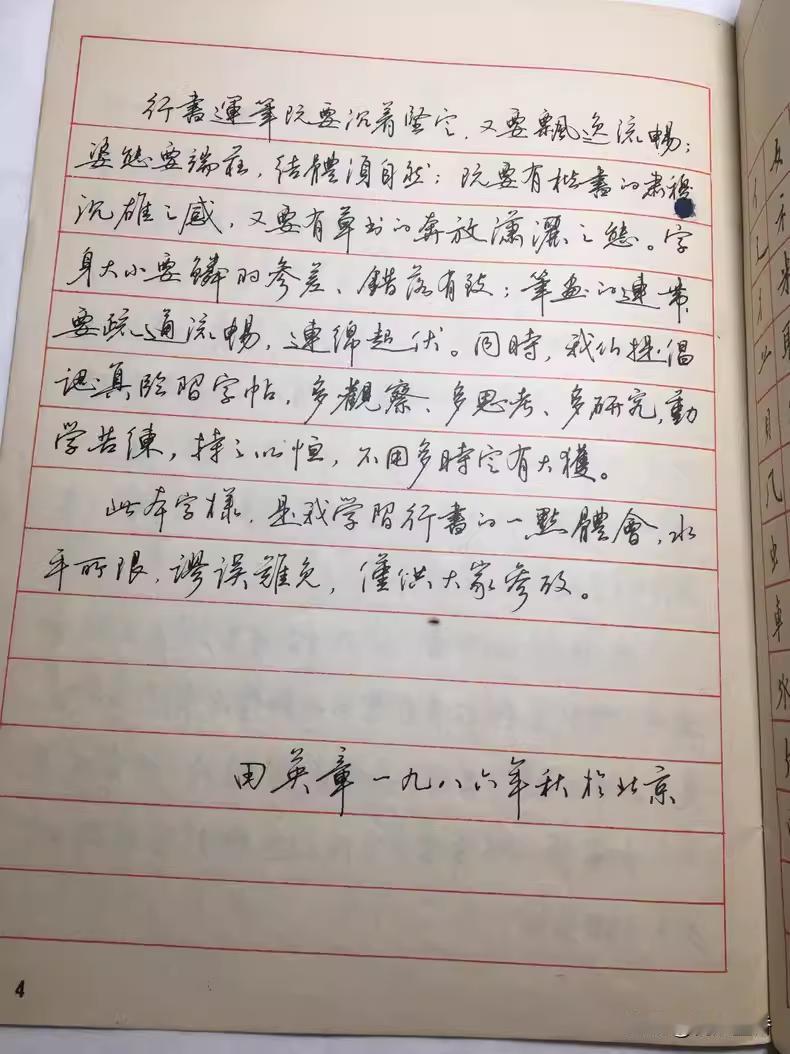 行書運筆既要沉着堅定，又要飄逸流暢；
姿態要端莊，結體須自然；既要有楷書的肅穆
沉雄之感，又要有草书的奔放瀟灑之態。字
身大小要鱗羽参差、錯落有致；筆画的連带
要疏通流暢，連綿起伏。同時，我们提倡
認真临習字帖，多觀察、多思考、多研究，勤
学苦練，持之以恒，不用多時定有大獲。
此本字樣，是我学習行書的一點體會，水
平所限，謬误難免，僅供大家参攷。
田英章一九八六年秋於北京
4